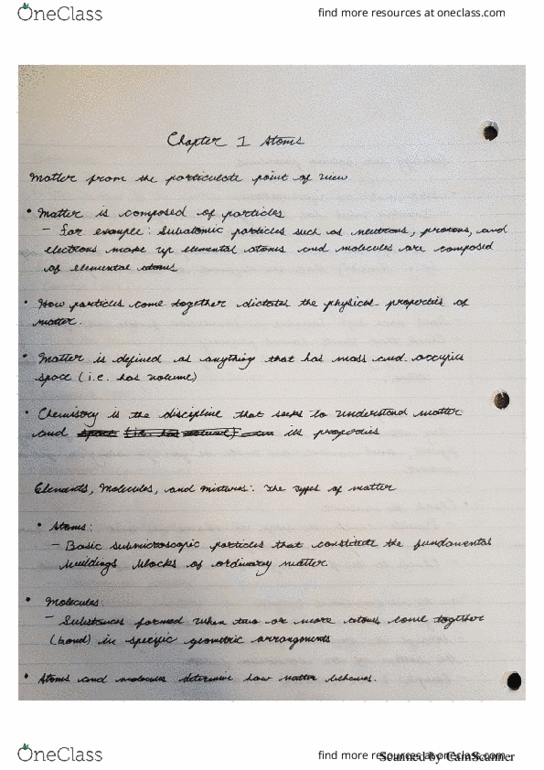 OneClass
find more resources at oneclass.com
Chapter 1 Atoms
Matter from the particulate point of view
• Matter is composed of particles
- For example: Subatomic particles such as neutrons, protons, and
electrons make up elemental atoms and molecules are composed
of elemental atoms
• How particles come together dictates the physical properties of
matter.
• Matter is defined as anything that has mass and occupies
space (i.e. has volume)
• Chemistry is the discipline that seeks to understand matter
and space (i.e. has its properties
Elements, Molecules, and mixtures: The types of matter
• Atoms:
- Basic submicroscopic particles that constitute the fundamental
buildings blocks of ordinary matter
• Molecules:
- Substances formed when two or more atoms come together
(bond) in specific geometric arrangements
• Atoms and molecules determine how matter behaves.
OneClass
find more resources at oneclass.com
Scanned by CamScanner